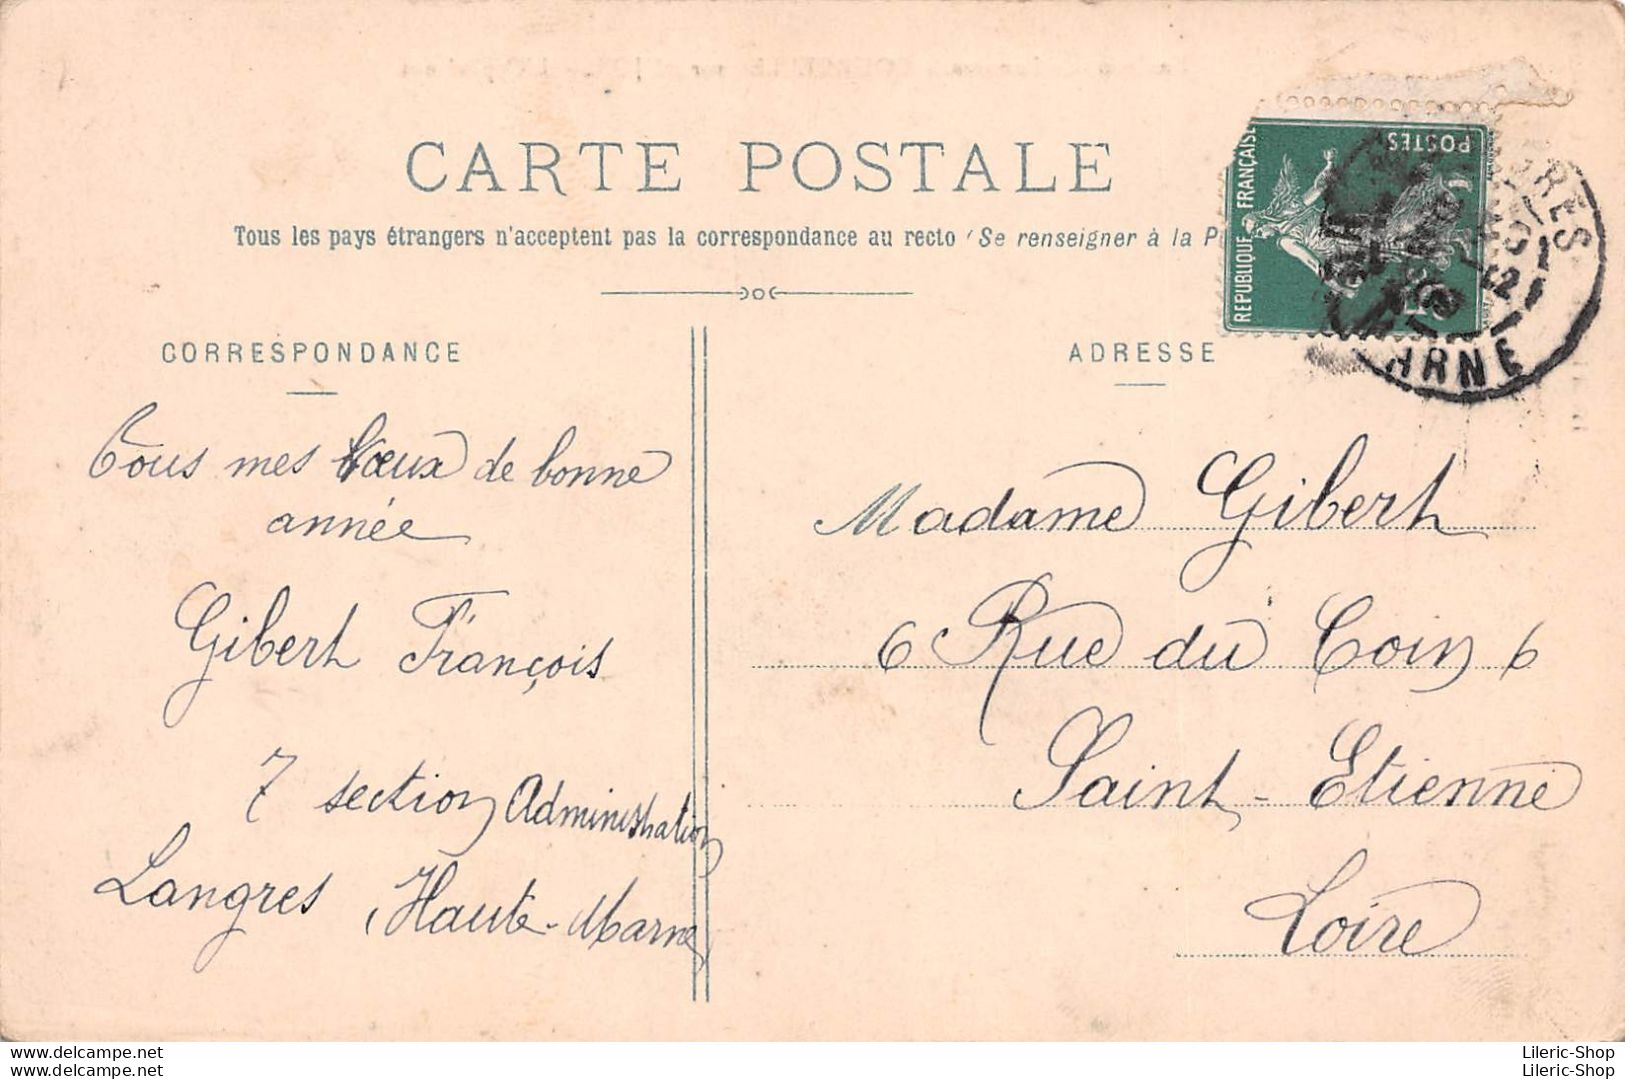 CARTE POSTALE
Tous les pays étrangers n'acceptent pas la correspondance au recto (Se renseigner à la P
CORRESPONDANCE
Tous mes Vœux de bonne
année
Gibert François
7 section Administration
Langres (Haute-Marne)
ADRESSE
Madame Gibert
6 Rue du Coin 6
Saint-Etienne
Loire
REPUBLIQUE FRANÇAISE
POSTES
5
12
ARNE
delcampe.net
delcampe.net
Lileric-Shop
Lileric-Shop